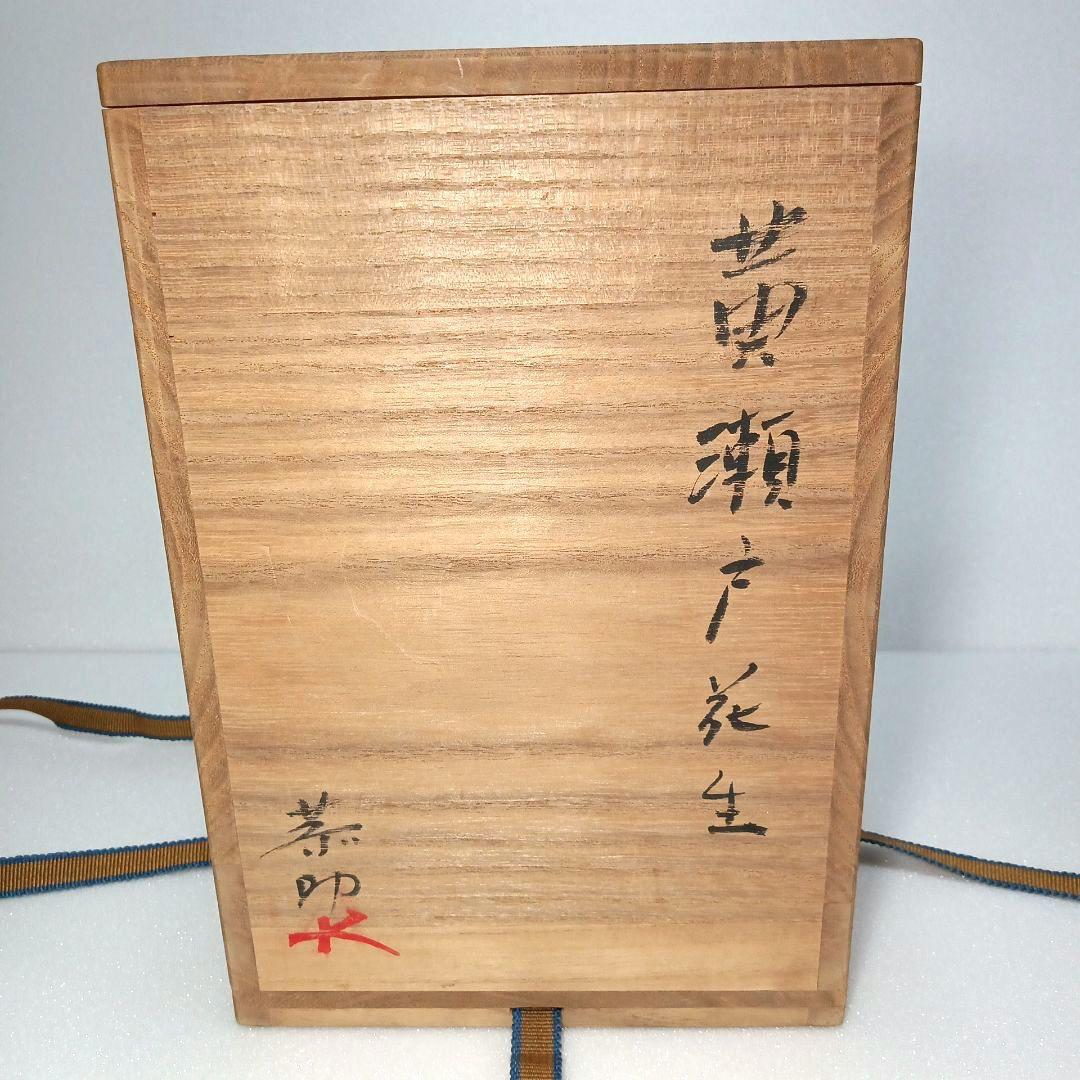 黄瀬戸花生
恭卯
K